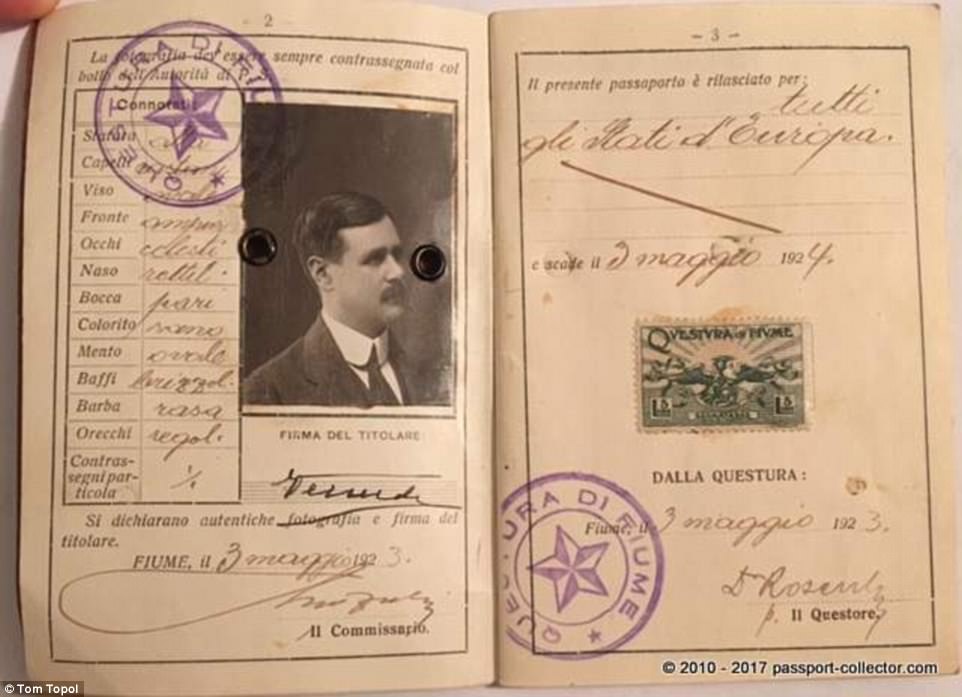 - 2 -
La fotografia dev'essere sempre contrassegnata col
bollo dell'Autorità di P.
QUESTURA DI FIUME
Connotati:
Statura alta
Capelli
Viso ovale
Fronte ampia
Occhi celesti
Naso rettil.
Bocca pari
Colorito sano
Mento ovale
Baffi brizzol.
Barba rasa
Orecchi regol.
Contras-
segni par-
ticola
FIRMA DEL TITOLARE
Si dichiarano autentiche fotografia e firma del
titolare.
FIUME, il 3 maggio 1923.
Il Commissario.
- 3 -
Il presente passaporto è rilasciato per:
tutti
gli Stati d'Europa.
e scade il 3 maggio 1924.
QUESTURA DI FIUME
L 5 L 5
DALLA QUESTURA:
QUESTURA DI FIUME
Fiume, il 3 maggio 1923.
p. Il Questore
© Tom Topol
© 2010 - 2017 passport-collector.com